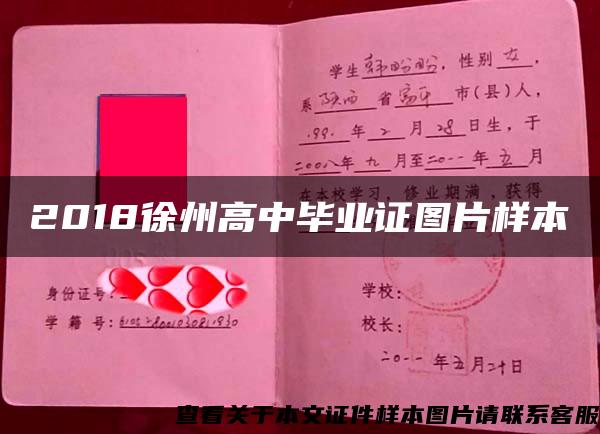 学生韩盼盼，性别女，
系陕西省富平市(县)人，
199.年2月28日生，于
二〇〇八年九月至二〇一一年五月
在本校学习，修业期满，获得
2018徐州高中毕业证图片样本
身份证号:
学籍号:
学校:
校长:
二〇一一年五月二十日
查看关于本文证件样本图片请联系客服